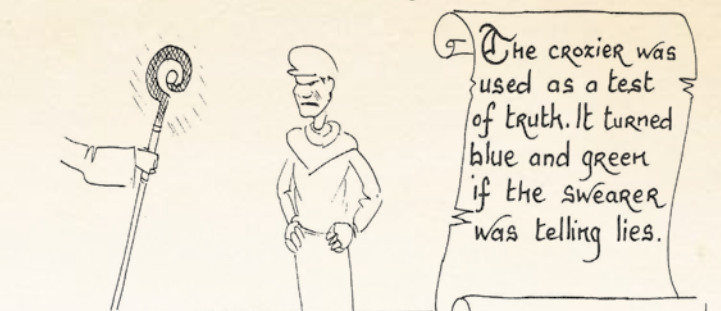 The crozier was
used as a test
of truth. It turned
blue and green
if the swearer
was telling lies.